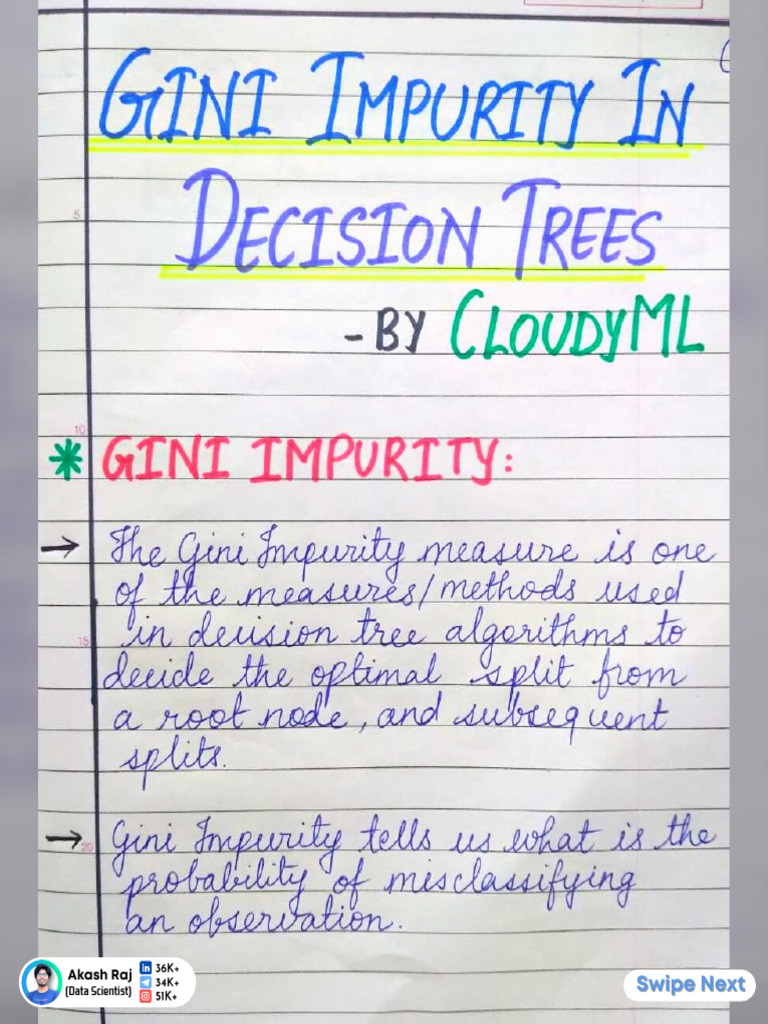 GINI IMPURITY IN
DECISION TREES
- BY CLOUDYML
5
10
* GINI IMPURITY:
→ The Gini Impurity measure is one
of the measures/methods used
15
in decision tree algorithms to
decide the optimal split from
a root node, and subsequent
splits.
→ Gini Impurity tells us what is the
20
probability of misclassifying
an observation.
Akash Raj
(Data Scientist)
in 36K+
34K+
51K+
Swipe Next